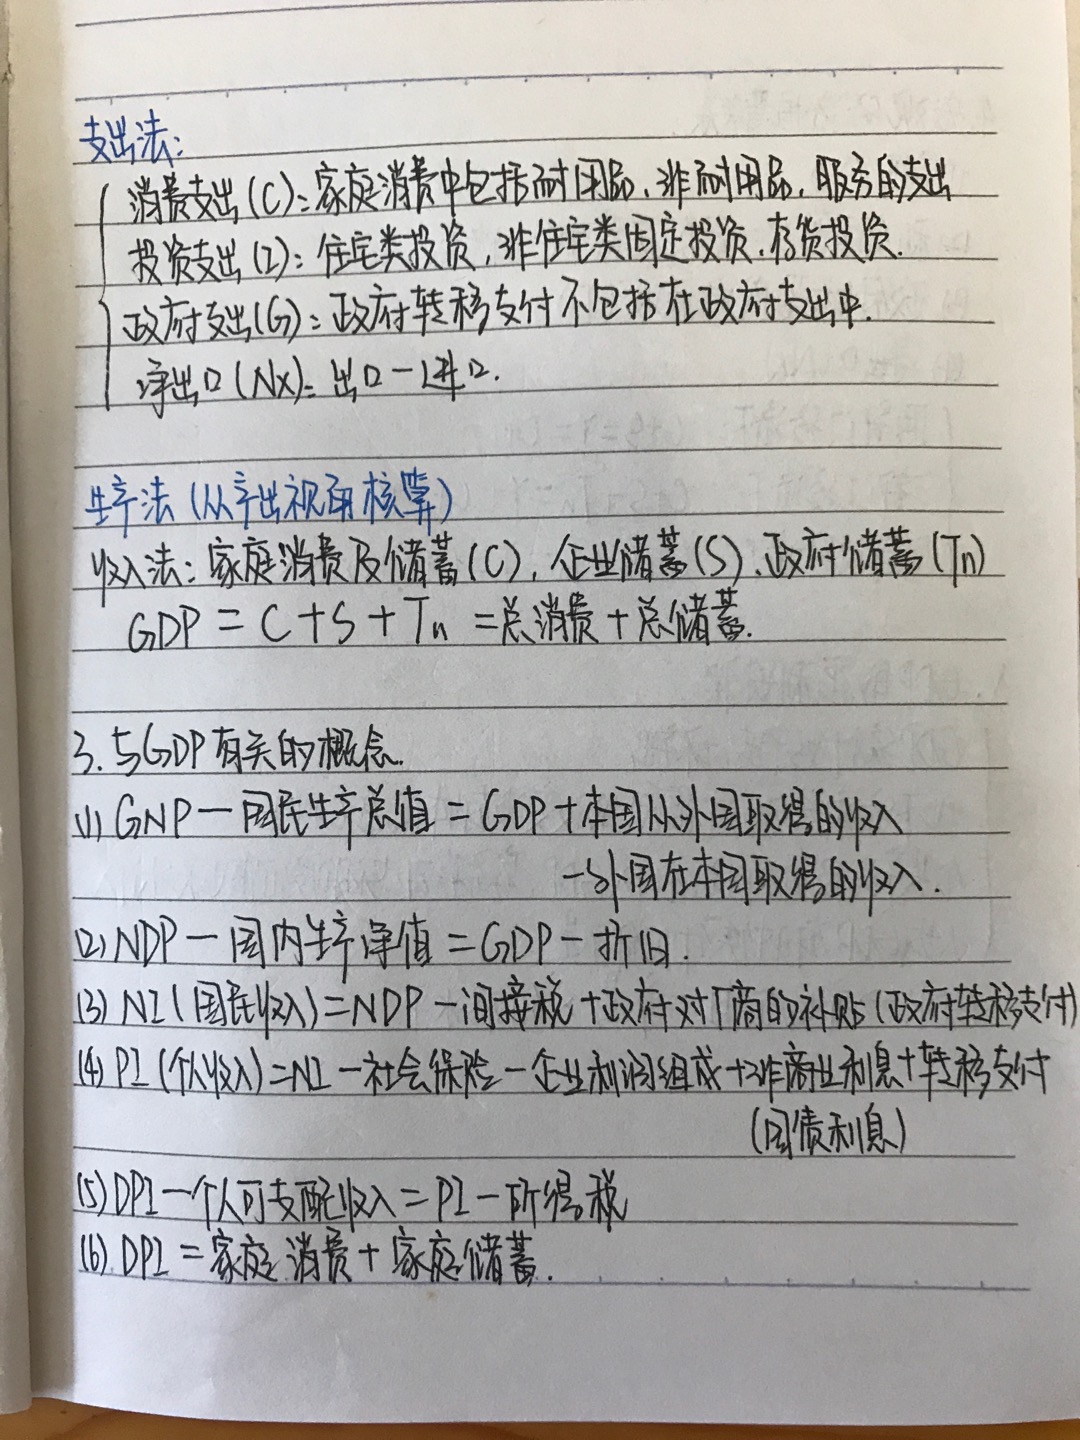 支出法:
消费支出(C):家庭消费中包括耐用品、非耐用品、服务的支出
投资支出(I):住宅类投资,非住宅类固定投资.存货投资.
政府支出(G):政府转移支付不包括在政府支出中.
净出口(NX):出口-进口.
生产法(从产出视角核算)
收入法:家庭消费及储蓄(C),企业储蓄(S)、政府储蓄(Tn)
GDP = C+S+Tn =总消费+总储蓄.
3.与GDP有关的概念.
(1) GNP-国民生产总值=GDP+本国从外国取得的收入
-外国在本国取得的收入.
(2) NDP-国内生产净值=GDP-折旧.
(3) NI(国民收入)=NDP-间接税+政府对厂商的补贴(政府转移支付)
(4) PI(个人收入)=NI-社会保险-企业利润组成+非商业利息+转移支付
(国债利息)
(5) DPI-个人可支配收入=PI-所得税
(6) DPI=家庭消费+家庭储蓄.